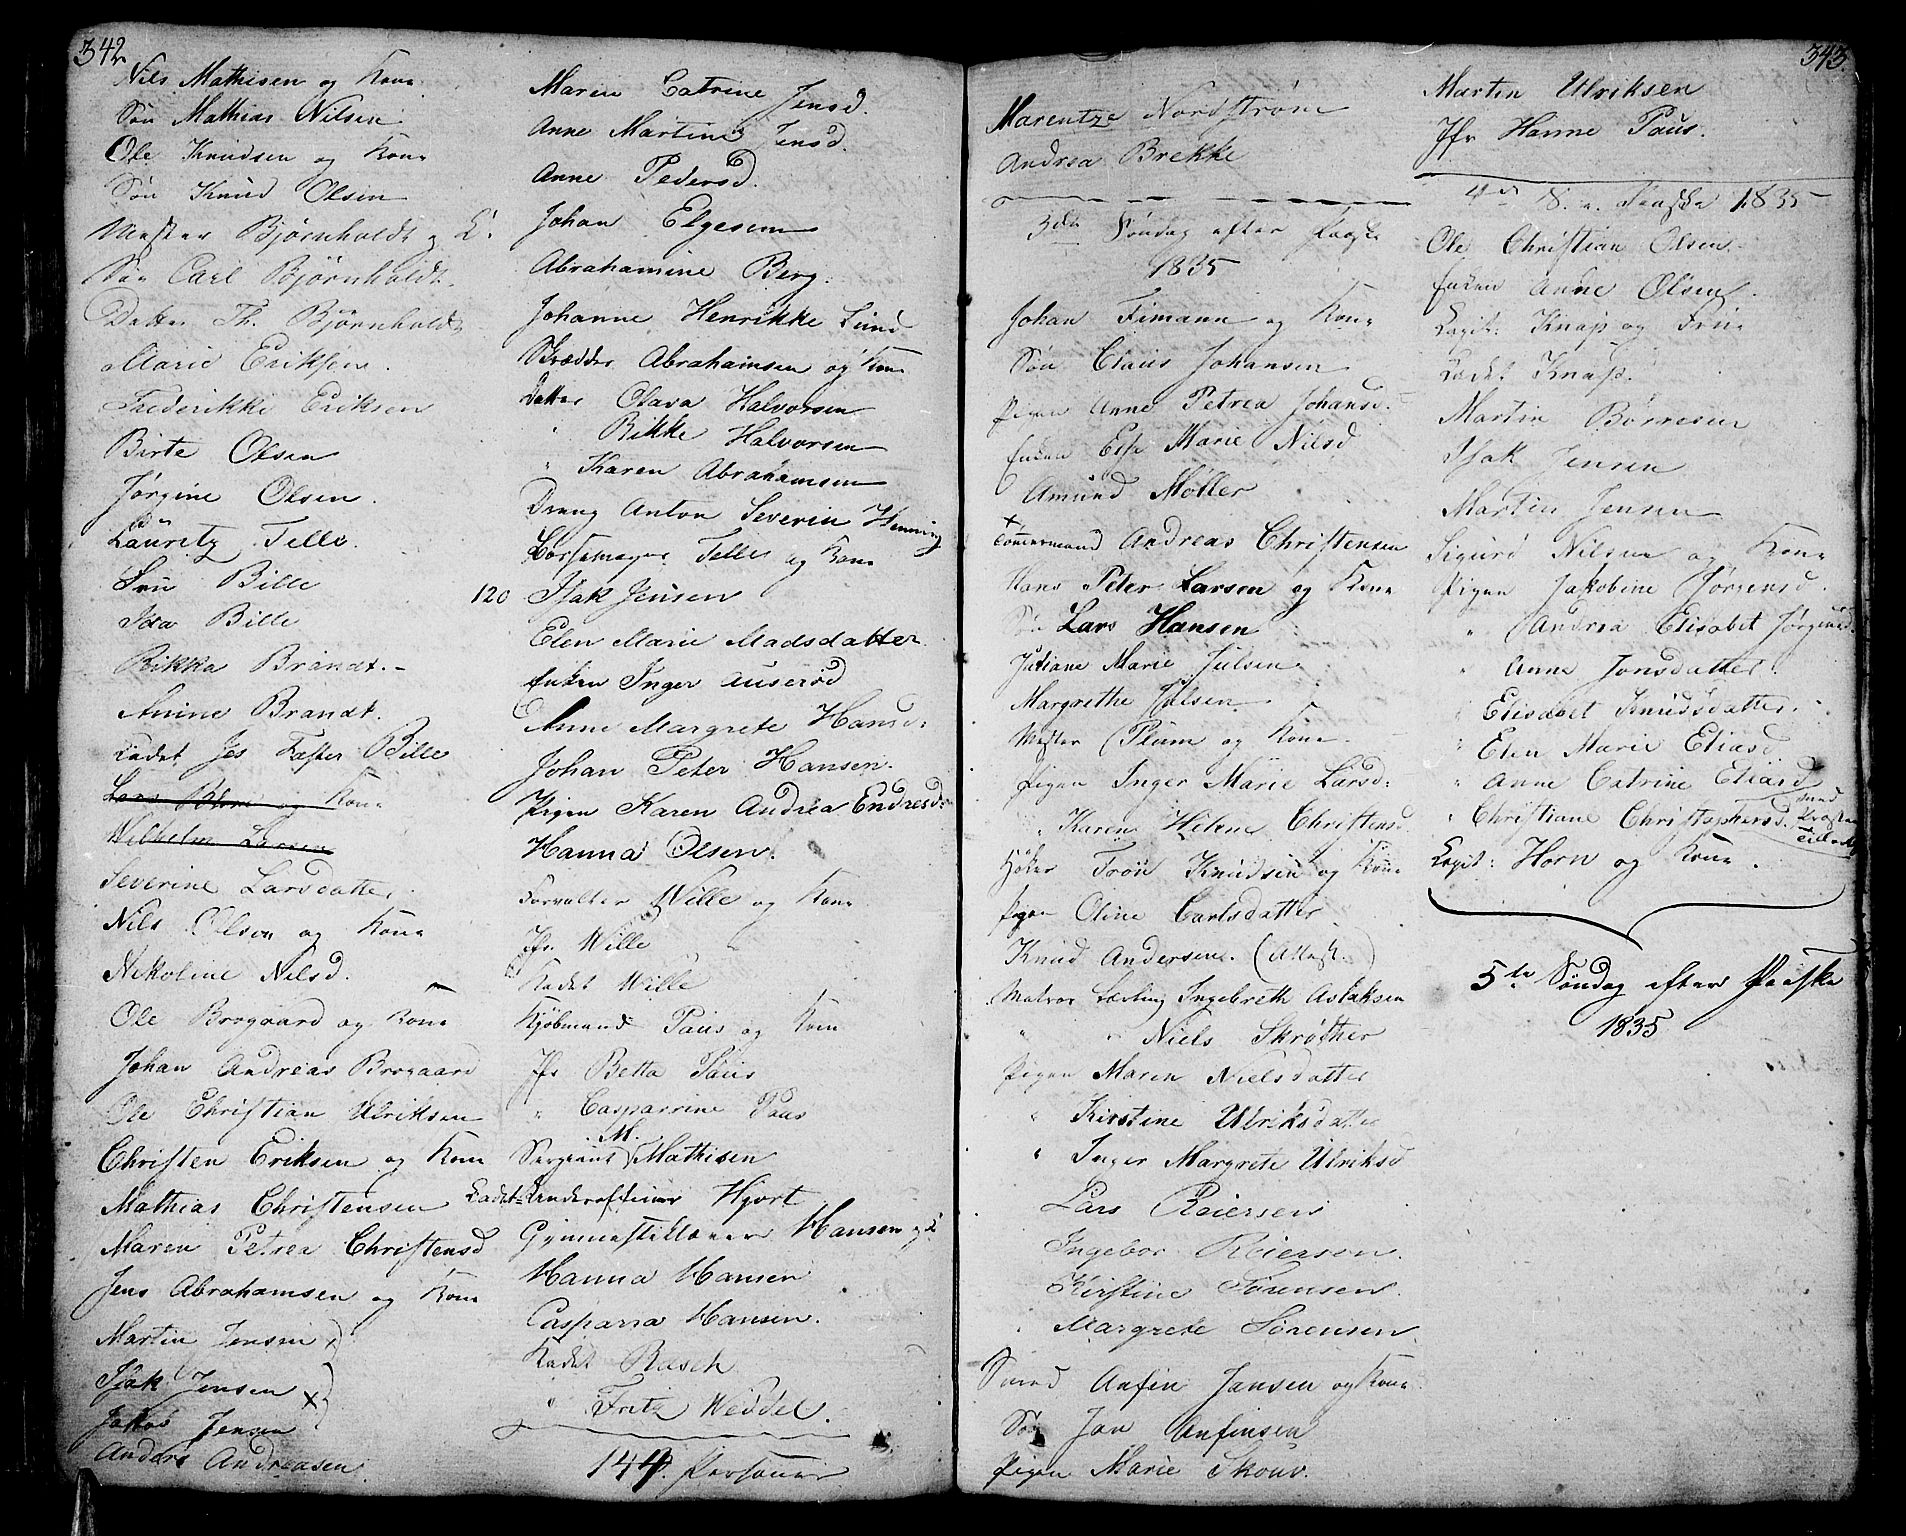 342
Nils Mathisen og Kone
Søn Mathias Nilsen
Ole Knudsen og Kone
Søn Knud Olsen
Mester Bjørnholdt og K:
Søn Carl Bjørnholdt.
Datter Th. Bjørnholdt
Marie Eriksen.
Frederikke Eriksen
Birte Olsen
Jørgine Olsen.
Lauritz Telle.
Fru Bille
Ida Bille
Rikka Brandt.
Anine Brandt.
Kadet Jes Fæster Bille
Lars og Kone
Wilhelm Larsen
Severine Larsdatter.
Nils Olsen og Kone
Nikoline Nilsd.
Ole Brogaard og Kone
Johan Andreas Brogaard
Ole Christian Ulriksen
Christen Eriksen og Kone
Mathias Christensen
Maren Petrea Christensd
Jens Abrahamsen og Kone
Martin Jensen
Isak Jensen x
Jakob Jensen
Anders Andreasen.
Maren Catrine Jensd.
Anne Martine Jensd.
Anne Pedersd.
Johan Elgesem
Abrahamine Berg.
Johanne Henrikke Lund
Skrædder Abrahamsen og Kone
Datter Olava Halvorsen
" Rikke Halvorsen
" Karen Abrahamsen
Dreng Anton Severin Henning
Telle og Kone
120 Isak Jensen
Elen Marie Madsdatter.
Enken Inger Auserød
Anne Margrete Hansd:
Johan Peter Hansen.
Pigen Karen Andrea Endresd:
Hanna Olsen.
Forvalter Wille og Kone
Jfr Wille
Kadet Wille
Kjøbmand Paus og Kone
Jfr Betta Paus
" Casparrine Paus
Sergeant M. Mathisen
Kadet-Underofficeer Hjort
Gymnastiklærer Hansen og K
Hanna Hansen
Casparra Hansen.
Kadet Rasch
" Fritz Weddel.
144. Personer
343.
Marentze Nordstrøm
Andrea Brekke
3die Søndag efter Paaske
1835
Johan Timann og Kone
Søn Claus Johansen
Pigen Anne Petrea Johansd.
Enken Else Marie Nilsd
Amund Møller
x
Tømmermand Andreas Christensen
Hans Peter Larsen og Kone
Søn Lars Hansen
Juliane Marie Julsen
Margrethe Julsen
Mester Plum og Kone.
Pigen Inger Marie Larsd:
" Karen Helene Christensd
Høker Tron Knudsen og Kone
Pigen Oline Carlsdatter
Knud Andersen. (Attest.)
Matros Lærling Ingebreth Aslaksen
" " Niels Skrøther
Pigen Maren Nielsdatter
" Kirstine Ulriksdatter
" Inger Margrete Ulriksd
Lars Reiersen
Ingebor Reierson.
Kirstine Sørensen.
Margrete Sørensen.
Smed Anfin Jansen og Kone
Søn Jan Anfinsen
Pigen Marie Skouv.
Martin Ulriksen
Jfr Hanne Paus.
4de S. e. Paaske 1835
Ole Christian Olsen
Enken Anne Olsen.
Capit: Knap og Frue
Kadet Knap.
Martin Børresen
Isak Jensen
Martin Jensen
Sigurd Nilsen og Kone
Pigen Jakobine Jørgensd.
" Andrea Elisabet Jørgensd.
" Anne Jonsdatter.
" Elisabet Knudsdatter.
" Elen Marie Eliasd
" Anne Catrine Eliasd
" Christiane Christophersd.
Capit: Horn og Kone.
5te Søndag efter Paaske
1835